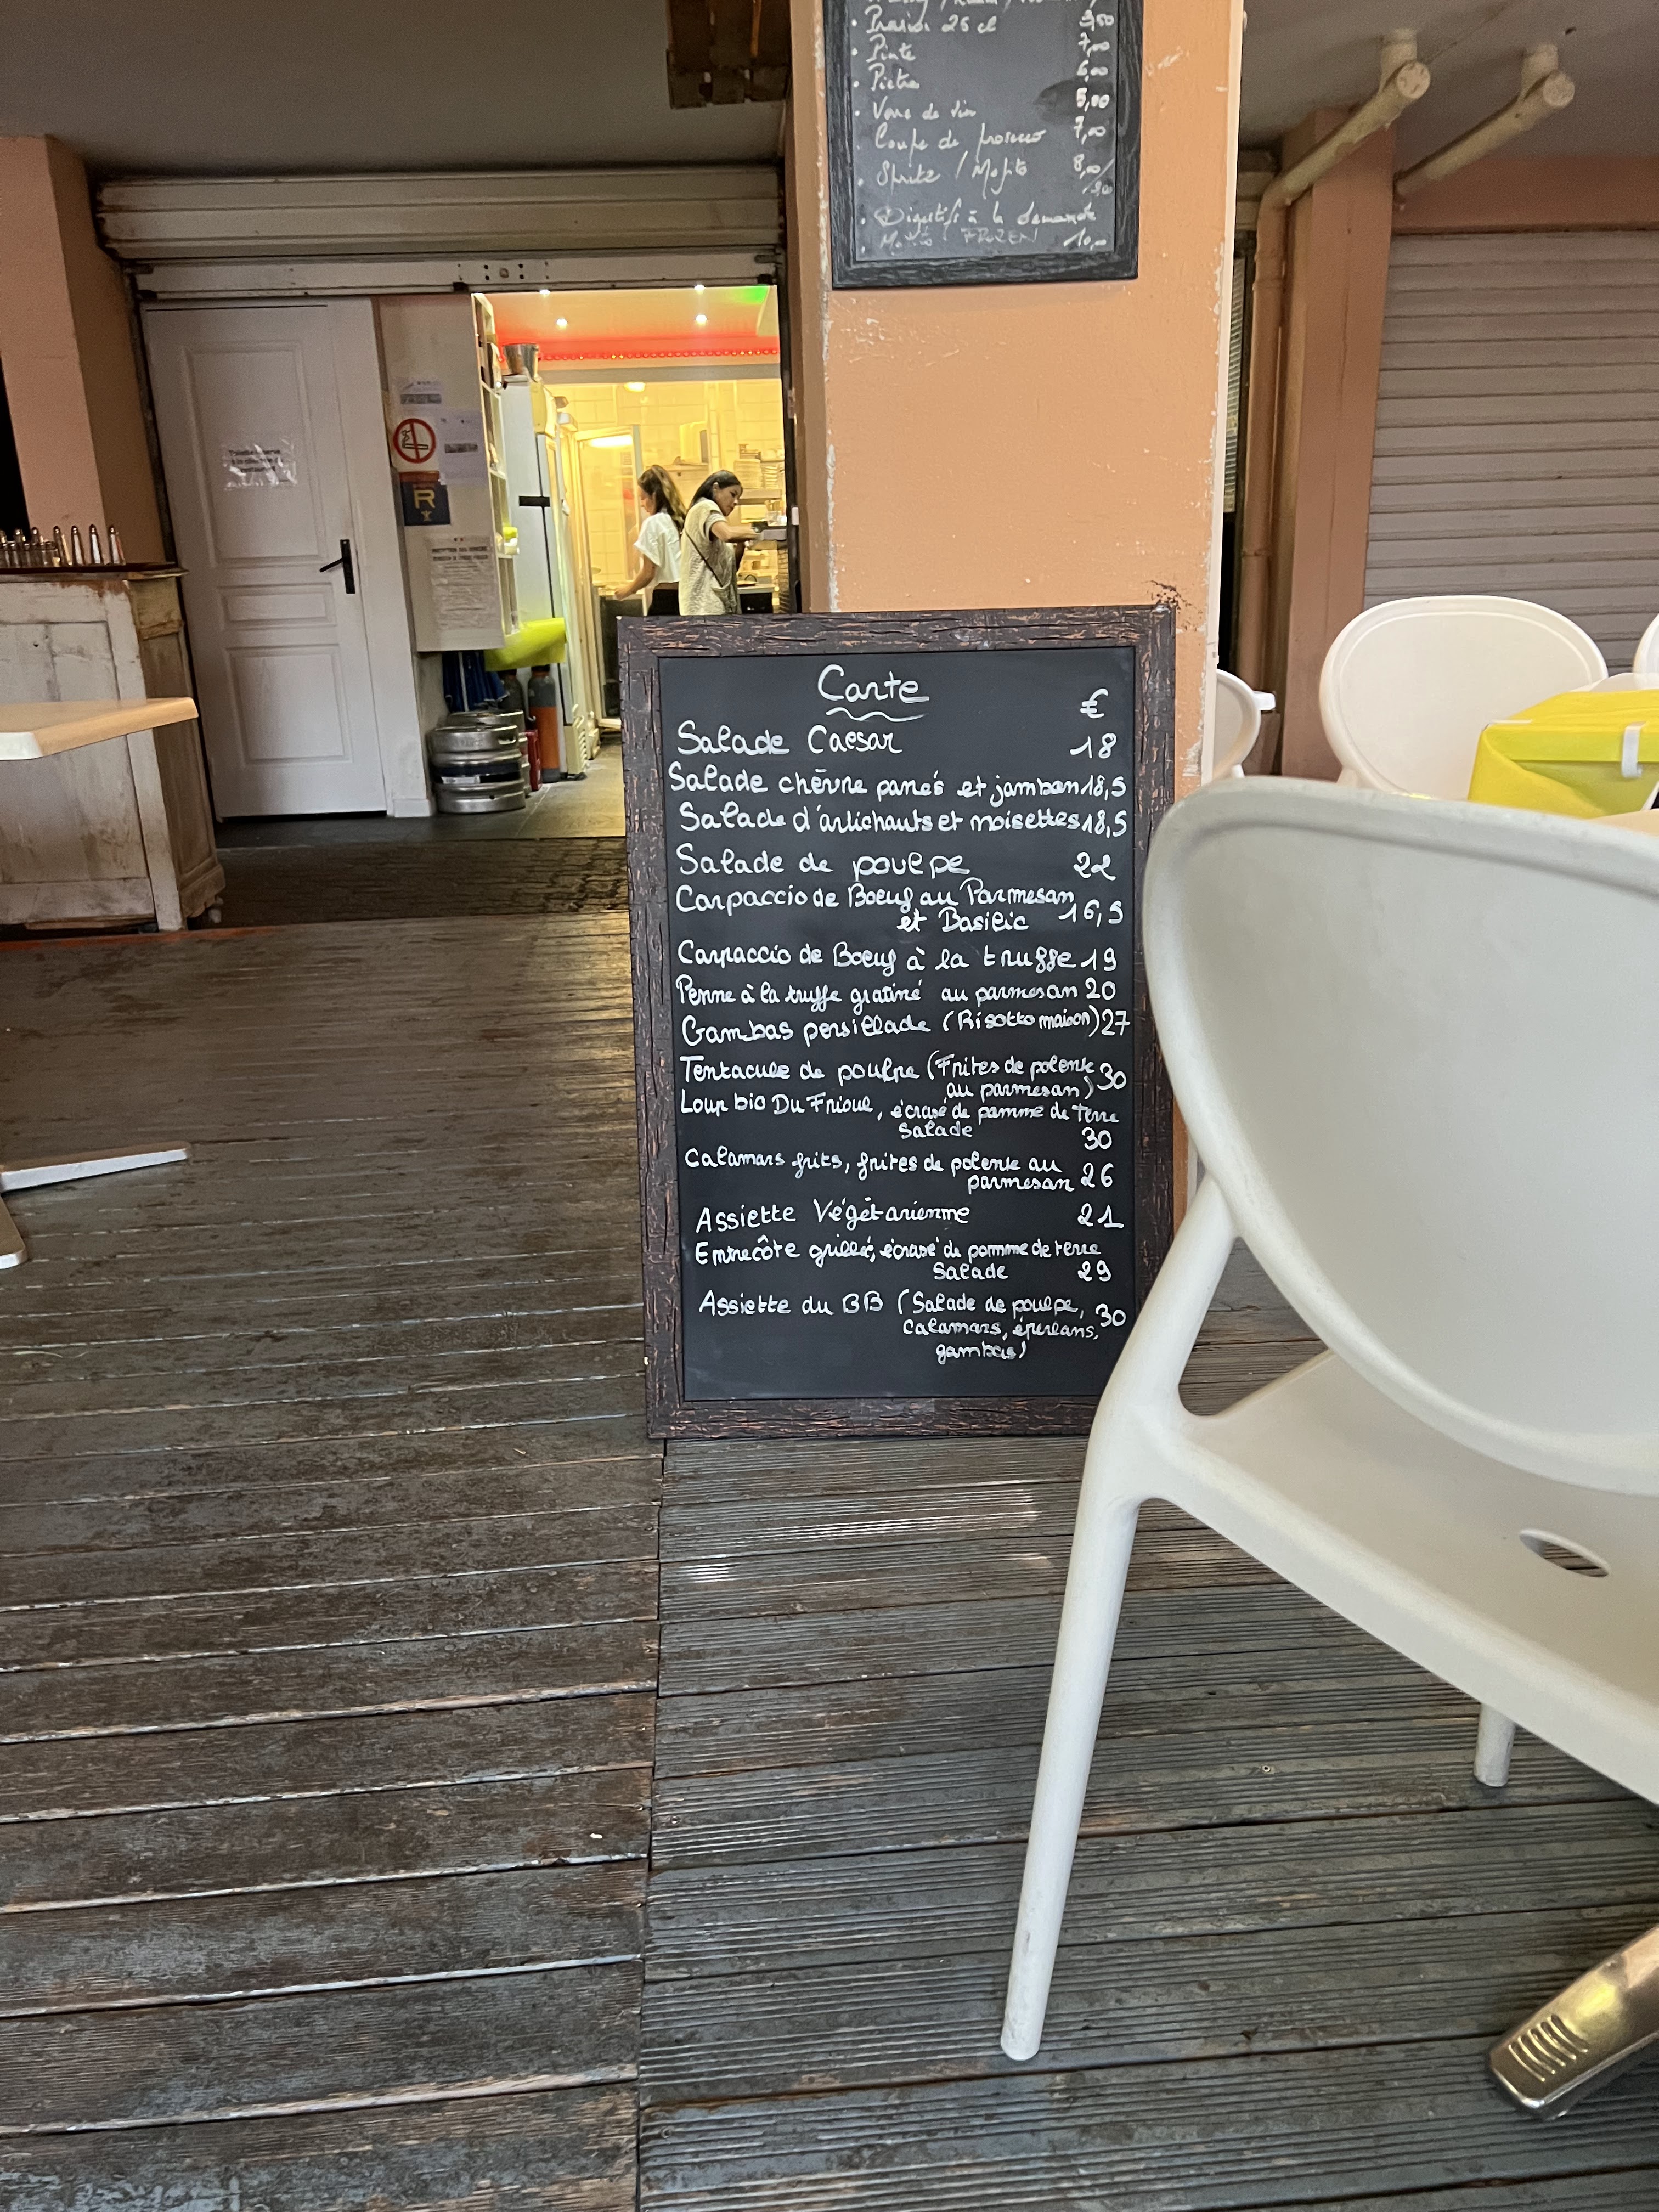 Pression 25 cl 3,50
Pinte 7,00
Pietra 6,00
Verre de vin 5,00
Coupe de prosecco 7,00
Spritz / Mojito 8,00/
9,00
Digestifs à la demande
FROZEN 10,00
R
Carte
€
Salade Caesar 18
Salade chèvre panés et jambon 18,5
Salade d'artichauts et noisettes 18,5
Salade de poulpe 22
Carpaccio de Boeuf au Parmesan
et Basilic 16,5
Carpaccio de Boeuf à la truffe 19
Penne à la truffe gratiné au parmesan 20
Gambas persillade (Risotto maison) 27
Tentacule de poulpe (Frites de polente 30
au parmesan)
Loup bio Du Frioul, écrasé de pomme de Terre
Salade 30
Calamars frits, frites de polente au
parmesan 26
Assiette Végétarienne 21
Entrecôte grillé, écrasé de pomme de terre
Salade 29
Assiette du BB (Salade de poulpe, 30
Calamars, éperlans,
gambas)